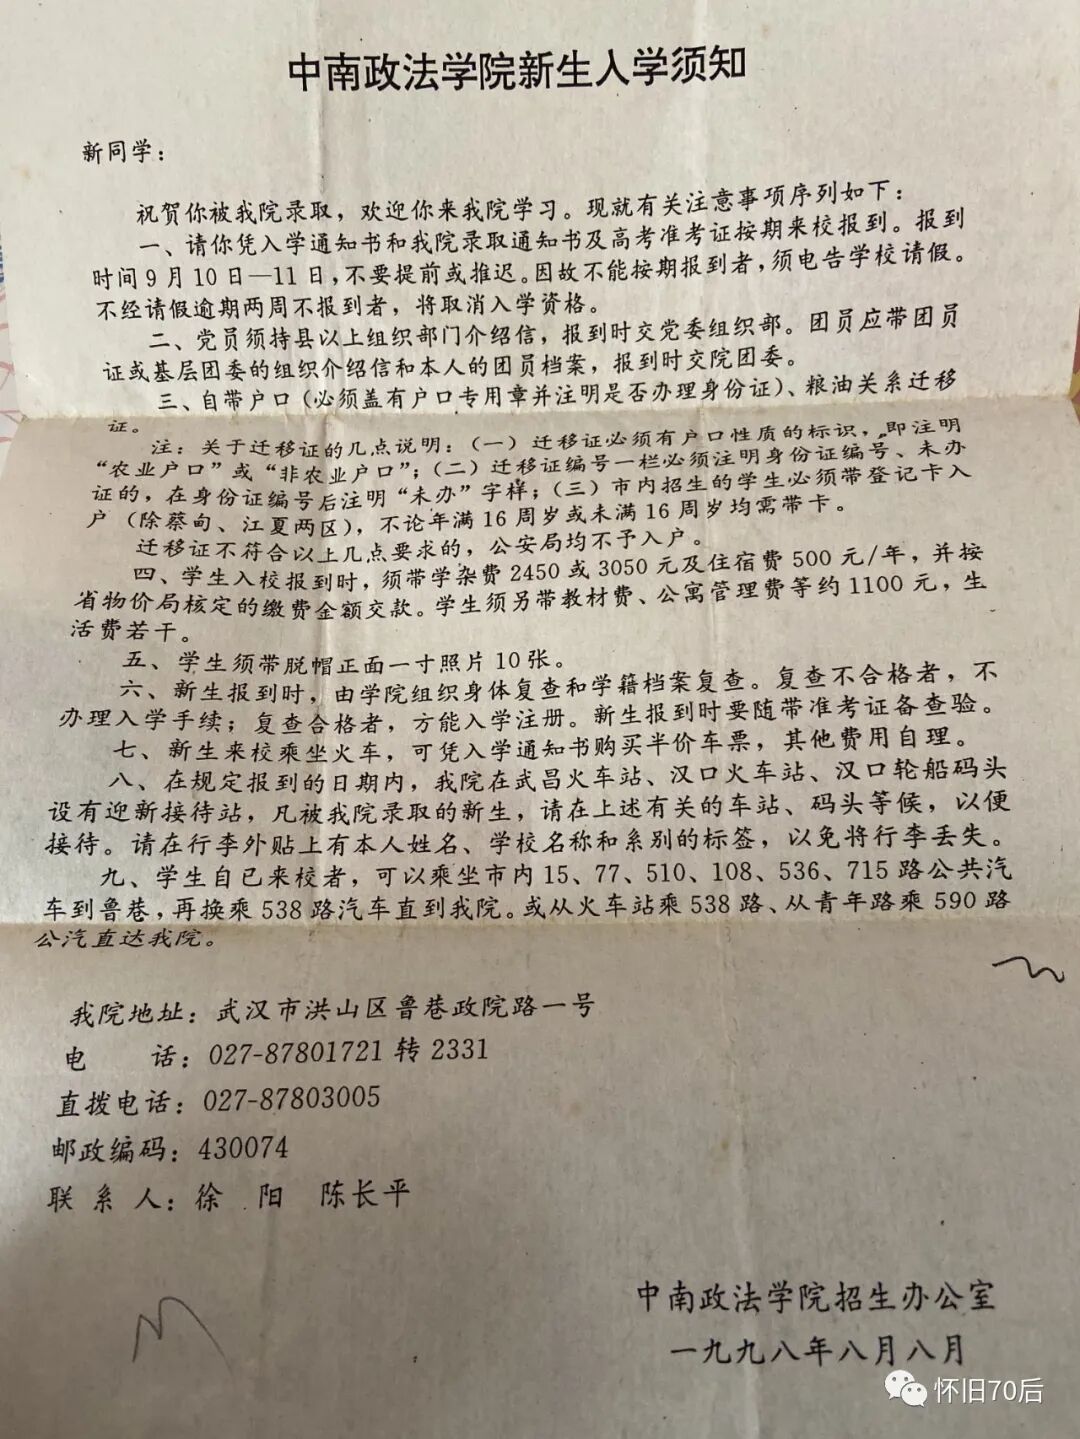 中南政法学院新生入学须知
新同学：
祝贺你被我院录取，欢迎你来我院学习。现就有关注意事项序列如下：
一、请你凭入学通知书和我院录取通知书及高考准考证按期来校报到。报到
时间9月10日—11日，不要提前或推迟。因故不能按期报到者，须电告学校请假。
不经请假逾期两周不报到者，将取消入学资格。
二、党员须持县以上组织部门介绍信，报到时交党委组织部。团员应带团员
证或基层团委的组织介绍信和本人的团员档案，报到时交院团委。
三、自带户口（必须盖有户口专用章并注明是否办理身份证）、粮油关系迁移
证。
注：关于迁移证的几点说明：（一）迁移证必须有户口性质的标识，即注明
“农业户口”或“非农业户口”；（二）迁移证编号一栏必须注明身份证编号、未办
证的，在身份证编号后注明“未办”字样；（三）市内招生的学生必须带登记卡入
户（除蔡甸、江夏两区），不论年满16周岁或未满16周岁均需带卡。
迁移证不符合以上几点要求的，公安局均不予入户。
四、学生入校报到时，须带学杂费2450或3050元及住宿费500元/年，并按
省物价局核定的缴费金额交款。学生须另带教材费、公寓管理费等约1100元，生
活费若干。
五、学生须带脱帽正面一寸照片10张。
六、新生报到时，由学院组织身体复查和学籍档案复查。复查不合格者，不
办理入学手续；复查合格者，方能入学注册。新生报到时要随带准考证备查验。
七、新生来校乘坐火车，可凭入学通知书购买半价车票，其他费用自理。
八、在规定报到的日期内，我院在武昌火车站、汉口火车站、汉口轮船码头
设有迎新接待站，凡被我院录取的新生，请在上述有关的车站、码头等候，以便
接待。请在行李外贴上有本人姓名、学校名称和系别的标签，以免将行李丢失。
九、学生自已来校者，可以乘坐市内15、77、510、108、536、715路公共汽
车到鲁巷，再换乘538路汽车直到我院。或从火车站乘538路、从青年路乘590路
公汽直达我院。
我院地址：武汉市洪山区鲁巷政院路一号
电　　话：027-87801721转2331
直拨电话：027-87803005
邮政编码：430074
联 系 人：徐　阳　陈长平
中南政法学院招生办公室
一九九八年八月八月
怀旧70后